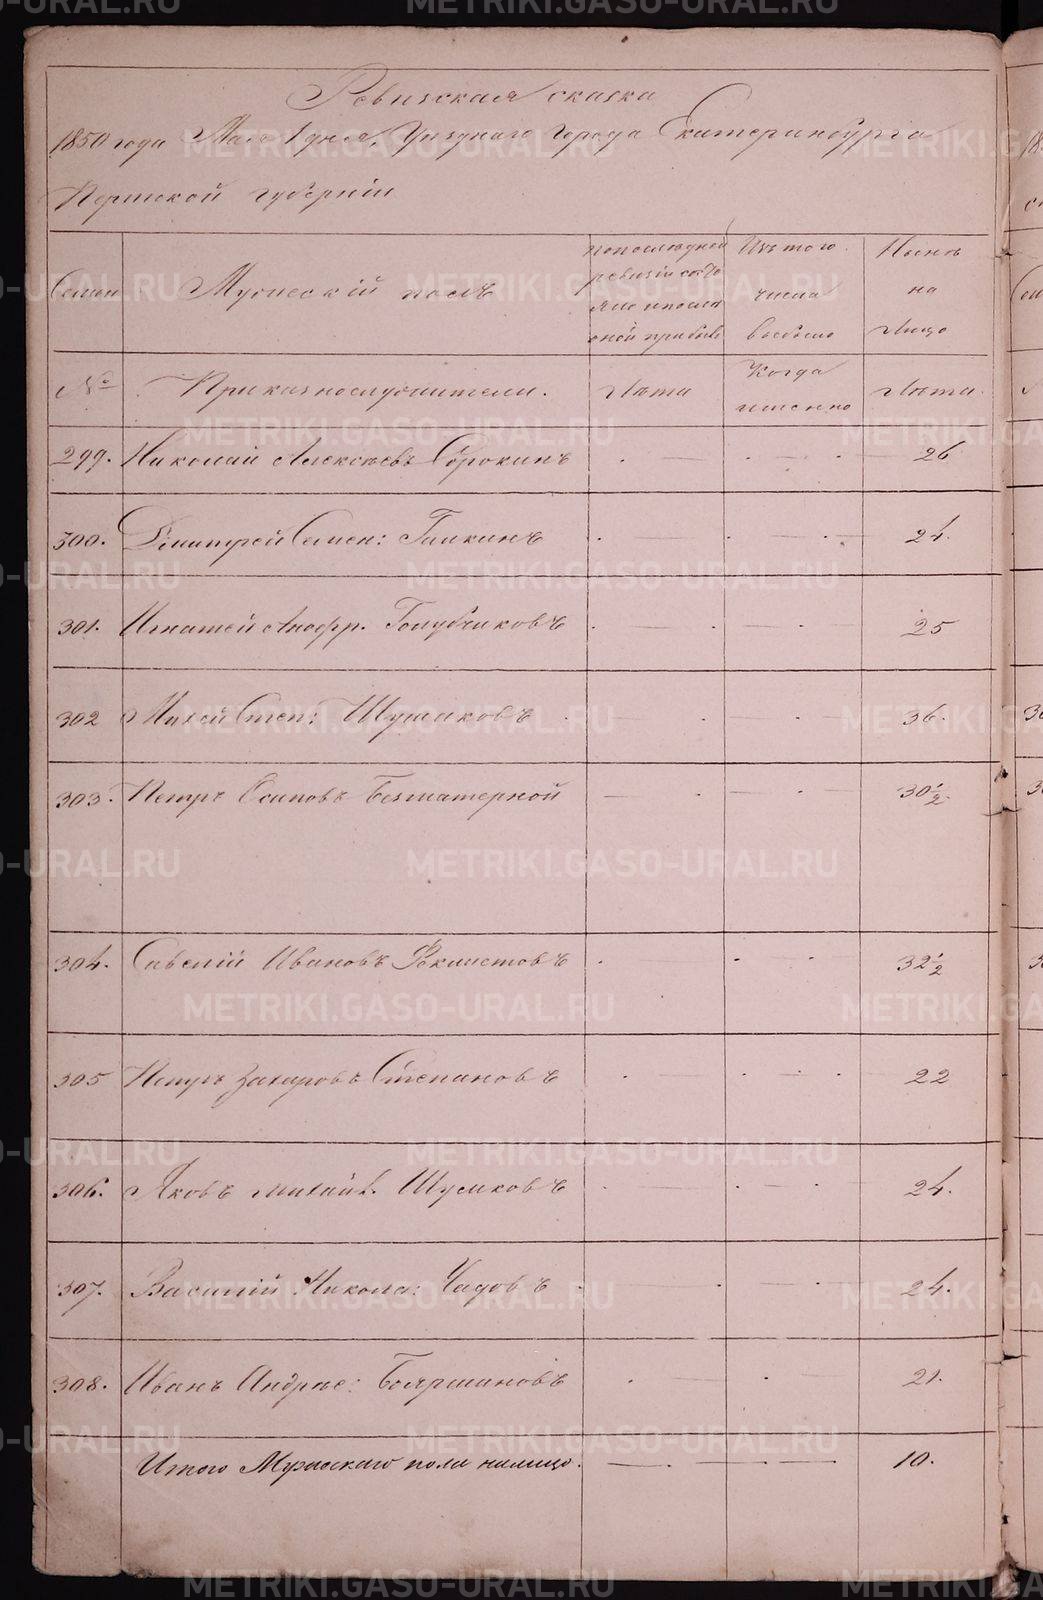 Ревизская сказка
1850 года Мая 1 дня, Уезднаго города Екатеринбурга
Пермской губернiи
Семеи Мужескiй полъ
по последней Изъ того Ныне
ревизiи состо числа на
яло и после выбыло Лицо
оной прибыло
№ Приказнослужители. Лета Когда именно Лета.
299. Николай Алексеевъ Сорокинъ 26
300. Дмитрей Семен: Галкинъ 24.
301. Игнатей Анофр. Голубчиковъ 25
302 Михей Степ: Шумаковъ 36.
303. Петръ Осиповъ Безматерной 30 1/2
304. Савелiй Ивановъ Феклистовъ 32 1/2
305 Петръ Захаровъ Степановъ 22
306. Яковъ Михайл. Шумковъ 24.
307. Василiй Никола: Чадовъ 24.
308. Иванъ Андрее: Бояршиновъ 21.
Итого Мужескаго пола налицо. 10.
METRIKI.GASO-URAL.RU